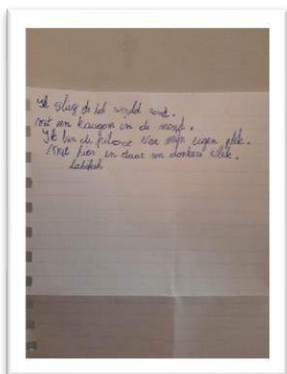 Ik vlieg de hele wereld rond.
Met een kauwgom in de mond.
Ik ben de piloot van mijn eigen plek.
Met hier en daar een donkere vlek.